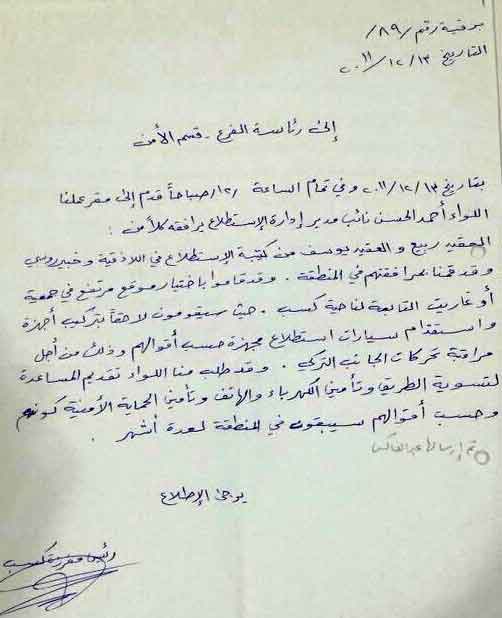 برقية رقم /٨٩/
التاريخ ٢٠١١/١٢/١٣
إلى رئاسة الفرع - قسم الأمن
بتاريخ ٢٠١١/١٢/١٣ وفي تمام الساعة /١٢/ صباحاً قدم إلى مقر عملنا
اللواء أحمد الحسن نائب مدير إدارة الإستطلاع يرافقه كلاً من :
العقيد ربيع و العقيد يوسف من كتيبة الإستطلاع في اللاذقية وخبير روسي
وقد قمنا بمرافقتهم في المنطقة . وقد قاموا باختيار موقع مرتفع في جمعية
أوغاريت التابعة لناحية كسب . حيث سيقومون لاحقاً بتركيب أجهزة
واستقدام سيارات استطلاع مجهزة حسب أقوالهم وذلك من أجل
مراقبة تحركات الجانب التركي . وقد طلب منا اللواء تقديم المساعدة
لتسوية الطريق وتأمين الكهرباء والهاتف وتأمين الحماية الأمنية كونهم
وحسب أقوالهم سيبقون في المنطقة لعدة أشهر .
تم إرسالها عبر الفاكس
يرجى الإطلاع
رئيس مفرزة كسب